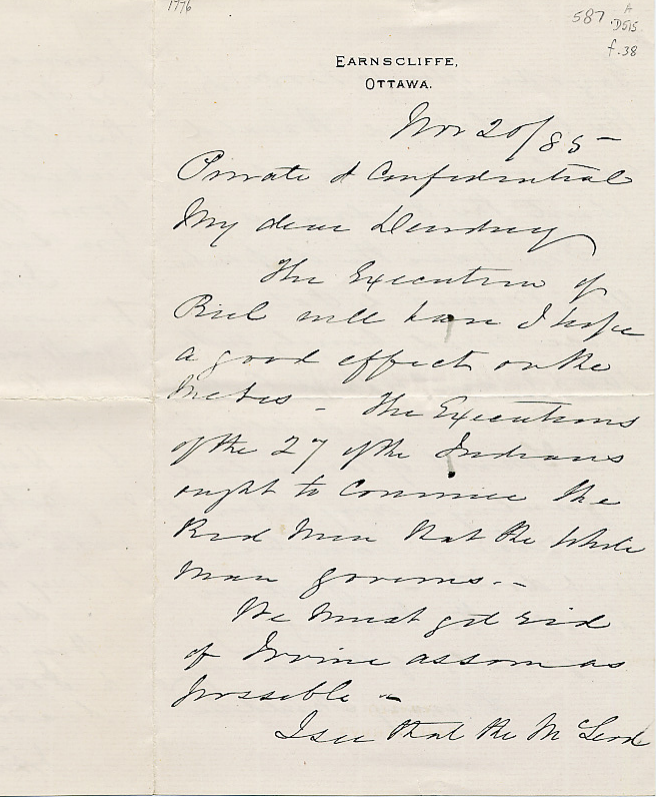 1776
587 A
D515
f.38
EARNSCLIFFE,
OTTAWA.
Nov 20/85 -
Private & Confidential
My dear Dewdney
The Execution of
Riel will have I hope
a good effect on the
Metis - The Executions
of the 27 of the Indians
ought to convince the
Red Man that the White
Man governs. -
We must get rid
of Irvine as soon as
possible -
I see that the McLeod